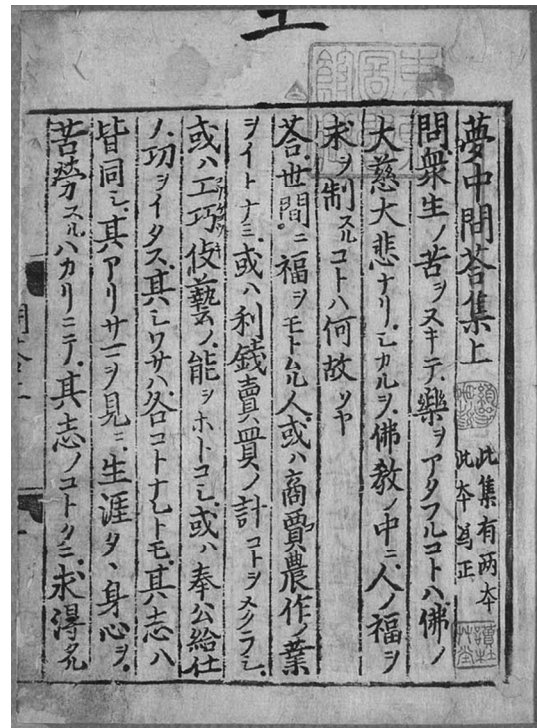 夢中問答集上
此集有兩本
此本爲正
問衆生ノ苦ヲヌキテ樂ヲアタフルコトハ佛ノ
大慈大悲ナリシカルヲ佛教ノ中ニ人ノ福ヲ
求ヲ制スルコトハ何故ソヤ
答世間ニ福ヲモトムル人或ハ商賈農作ノ業
ヲイトナミ或ハ利錢賣買ノ計コトヲメクラシ
或ハ工巧伎藝ノ能ヲホトコシ或ハ奉公給仕
ノ功ヲイタス其シワサハ各コトナレトモ其志ハ
皆同シ其アリサマヲ見ニ生涯タヽ身心ヲ
苦勞スルハカリニテ其志ノコトクニ求得タル